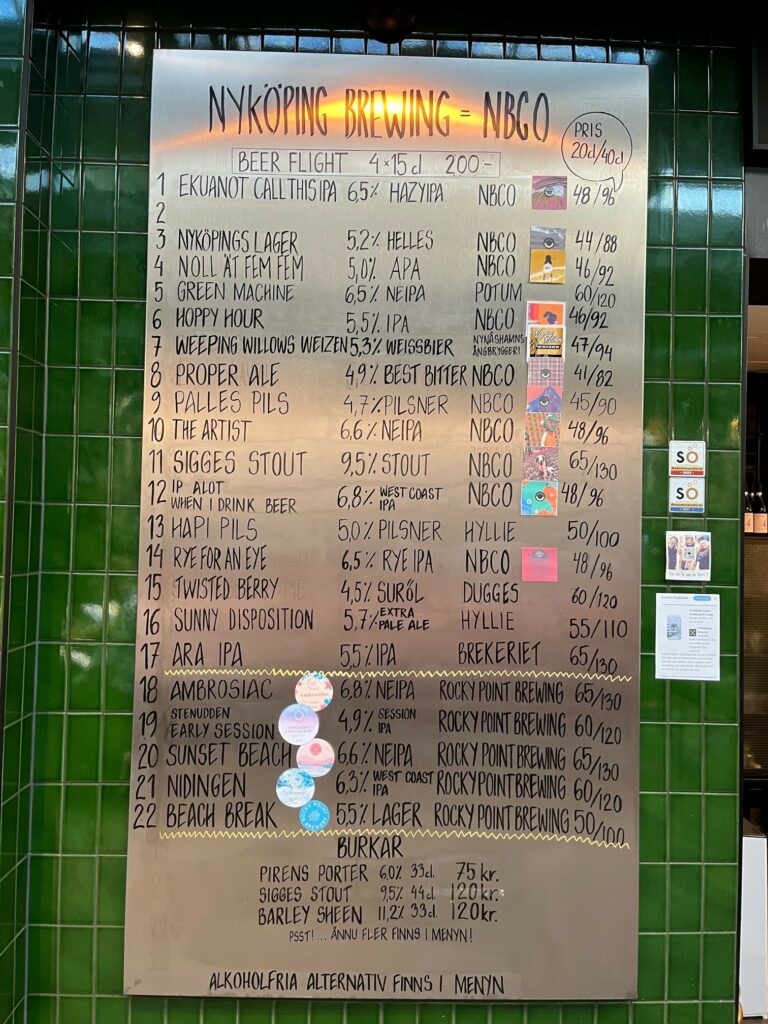 NYKÖPING BREWING = NBCO
PRIS
20cl/40cl
BEER FLIGHT 4×15cl 200:-
1 EKUANOT CALL THIS IPA 6,5% HAZY IPA NBCO 48/96
2
3 NYKÖPINGS LAGER 5,2% HELLES NBCO 44/88
4 NOLL ÅT FEM FEM 5,0% APA NBCO 46/92
5 GREEN MACHINE 6,5% NEIPA POTUM 60/120
6 HOPPY HOUR 5,5% IPA NBCO 46/92
7 WEEPING WILLOWS WEIZEN 5,3% WEISSBIER NYNÄSHAMNS ÅNGBRYGGERI 47/94
8 PROPER ALE 4,9% BEST BITTER NBCO 41/82
9 PALLES PILS 4,7% PILSNER NBCO 45/90
10 THE ARTIST 6,6% NEIPA NBCO 48/96
11 SIGGES STOUT 9,5% STOUT NBCO 65/130
12 IP ALOT WHEN I DRINK BEER 6,8% WEST COAST IPA NBCO 48/96
13 HAPI PILS 5,0% PILSNER HYLLIE 50/100
14 RYE FOR AN EYE 6,5% RYE IPA NBCO 48/96
15 TWISTED BERRY PIE 4,5% SURÖL DUGGES 60/120
16 SUNNY DISPOSITION 5,7% EXTRA PALE ALE HYLLIE 55/110
17 ARA IPA 5,5% IPA BREKERIET 65/130
18 AMBROSIAC 6,8% NEIPA ROCKY POINT BREWING 65/130
19 STENUDDEN EARLY SESSION 4,9% SESSION IPA ROCKY POINT BREWING 60/120
20 SUNSET BEACH 6,6% NEIPA ROCKY POINT BREWING 65/130
21 NIDINGEN 6,3% WEST COAST IPA ROCKY POINT BREWING 60/120
22 BEACH BREAK 5,5% LAGER ROCKY POINT BREWING 50/100
BURKAR
PIRENS PORTER 6,0% 33cl. 75 kr.
SIGGES STOUT 9,5% 44cl. 120 kr.
BARLEY SHEEN 11,2% 33cl. 120 kr.
PSST!... ÄNNU FLER FINNS I MENYN!
ALKOHOLFRIA ALTERNATIV FINNS I MENYN
SÖ
SÖ